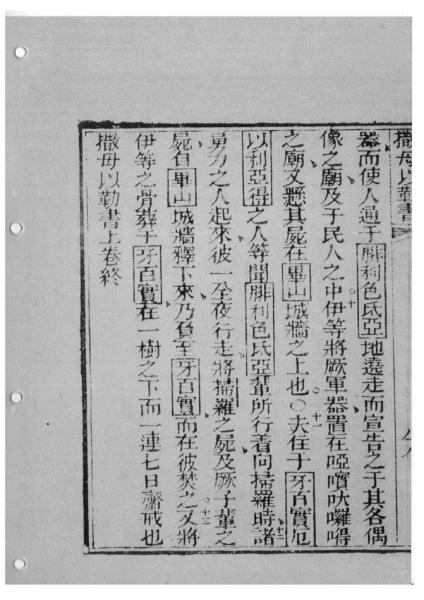 撒母以勒書上
器而使人通于腓利色氏亞地遶走而宣告之于其各偶
像之廟及于民人之中十伊等將厥軍器置在啞嚽吠囉㗁
之廟又懸其屍在畢山城牆之上也○十一夫住于牙百實厄
以利亞得之人等聞腓利色氏亞輩所行着向掃羅時十二諸
勇力之人起來彼一全夜行走將掃羅之屍及厥子輩之
屍自畢山城牆釋下來乃負至牙百實而在彼焚之十三又將
伊等之骨葬于牙百實在一樹之下而一連七日齋戒也
撒母以勒書上卷終